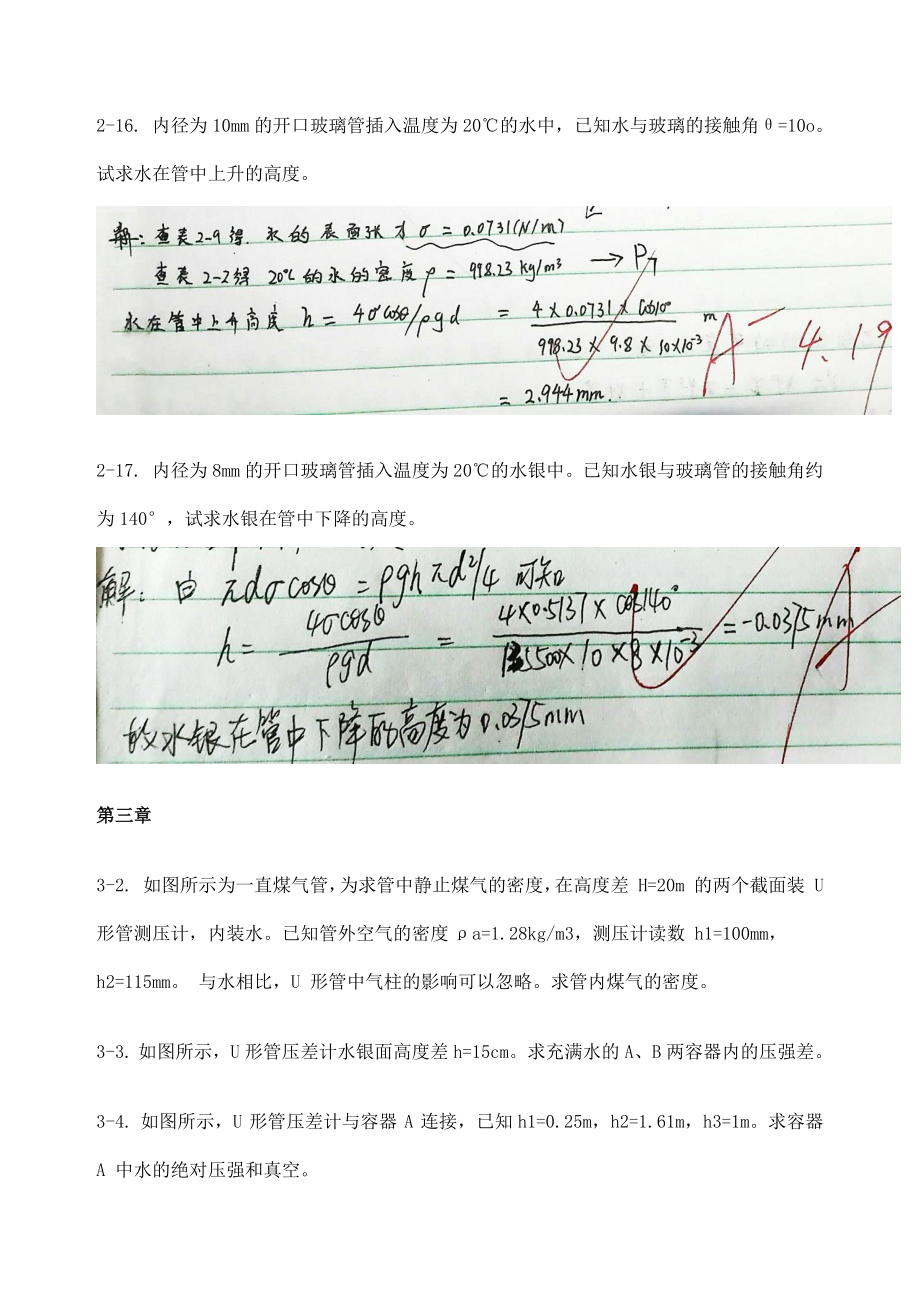 2-16. 内径为10mm的开口玻璃管插入温度为20℃的水中，已知水与玻璃的接触角θ=10o。
试求水在管中上升的高度。
解：查表2-9得. 水的表面张力 σ = 0.0731(N/m)
查表2-2得 20℃的水的密度 ρ = 998.23 kg/m³ → P
水在管中上升高度 h = 4σcosθ/ρgd = 4×0.0731×cos10° / 998.23×9.8×10×10⁻³ m A⁻ 4.19
= 2.944mm.
2-17. 内径为8mm的开口玻璃管插入温度为20℃的水银中。已知水银与玻璃管的接触角约
为140°，试求水银在管中下降的高度。
解：由 πdσcosθ = ρghπd²/4 可知
h = 4σcosθ / ρgd = 4×0.5137×cos140° / 135500×10×8×10⁻³ = -0.0375mm A
故水银在管中下降的高度为0.0375mm
第三章
3-2. 如图所示为一直煤气管，为求管中静止煤气的密度，在高度差 H=20m 的两个截面装 U
形管测压计，内装水。已知管外空气的密度 ρa=1.28kg/m3，测压计读数 h1=100mm，
h2=115mm。 与水相比，U 形管中气柱的影响可以忽略。求管内煤气的密度。
3-3. 如图所示，U形管压差计水银面高度差h=15cm。求充满水的A、B两容器内的压强差。
3-4. 如图所示，U 形管压差计与容器 A 连接，已知h1=0.25m，h2=1.61m，h3=1m。求容器
A 中水的绝对压强和真空。